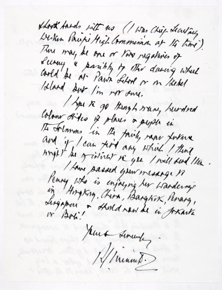 Shortlands with us (I was Chief Secretary,
Western Pacific High Commission at the time).
There may be one or two negatives of
scenery & possibly by other dancing which
could be at Pawa School or on Mekel
Island but I'm not sure.
I hope to go through many hundred
colour slides of places & people in
the Solomons in the fairly near future
and if I can find any which I think
might be of interest to you I will send them.
I have passed your message to
Penny who is enjoying her wanderings
in Hongkong, China, Bangkok, Penang,
Singapore & should now be in Jakarta
or Bali!
Yours sincerely,